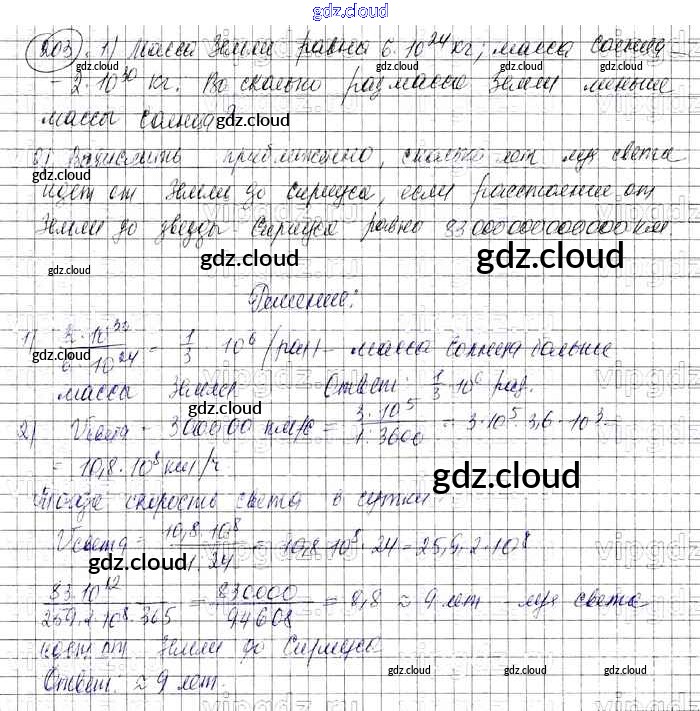 gdz.cloud
203. 1) Масса Земли равна 6·10²⁴ кг; масса солнца –
– 2·10³⁰ кг. Во сколько раз масса Земли меньше
массы солнца?
2) Вычислить приближённо, сколько лет луч света
идет от Земли до Сириуса, если расстояние от
Земли до звезды Сириуса равно 83000000000000 км
Решение:
1) = 1/3 · 10⁶ (раз) – масса Солнца больше
массы Земли Ответ: 1/3 · 10⁶ раз.
2) Vсвета = 300000 км/с = 3·10⁵ / 1:3600 = 3·10⁵·3,6·10³ =
= 10,8·10⁸ км/ч
скорость света в сутки
Vсвета = 10,8·10⁸ / 1:24 = 10,8·10⁸·24 = 259,2·10⁸
83·10¹² / 259,2·10⁸·365 = 830000 / 94608 = 8,8 ≈ 9 лет луч света
от Земли до Сириуса
Ответ: ≈ 9 лет.